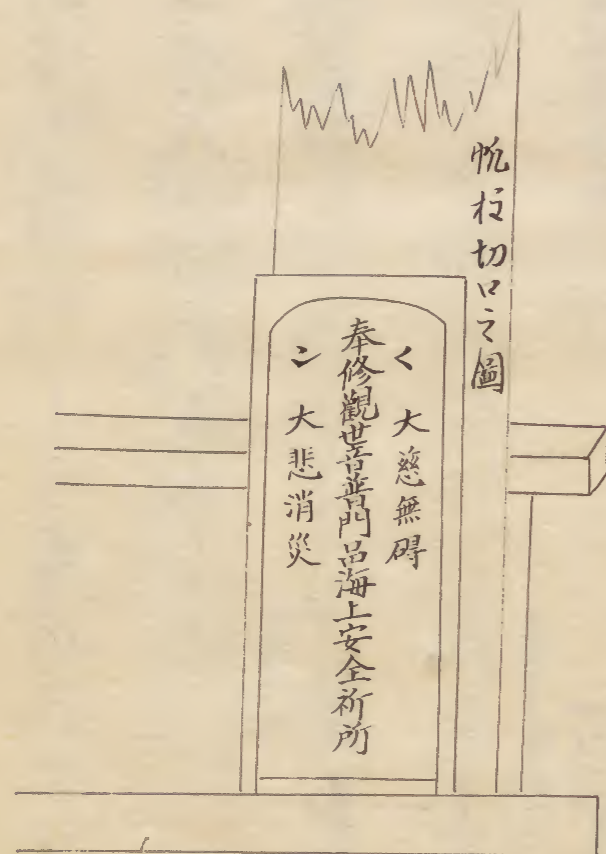 帆柱切口之圖
く 大慈無碍
奉修觀世音普門品海上安全祈所
ン 大悲消災